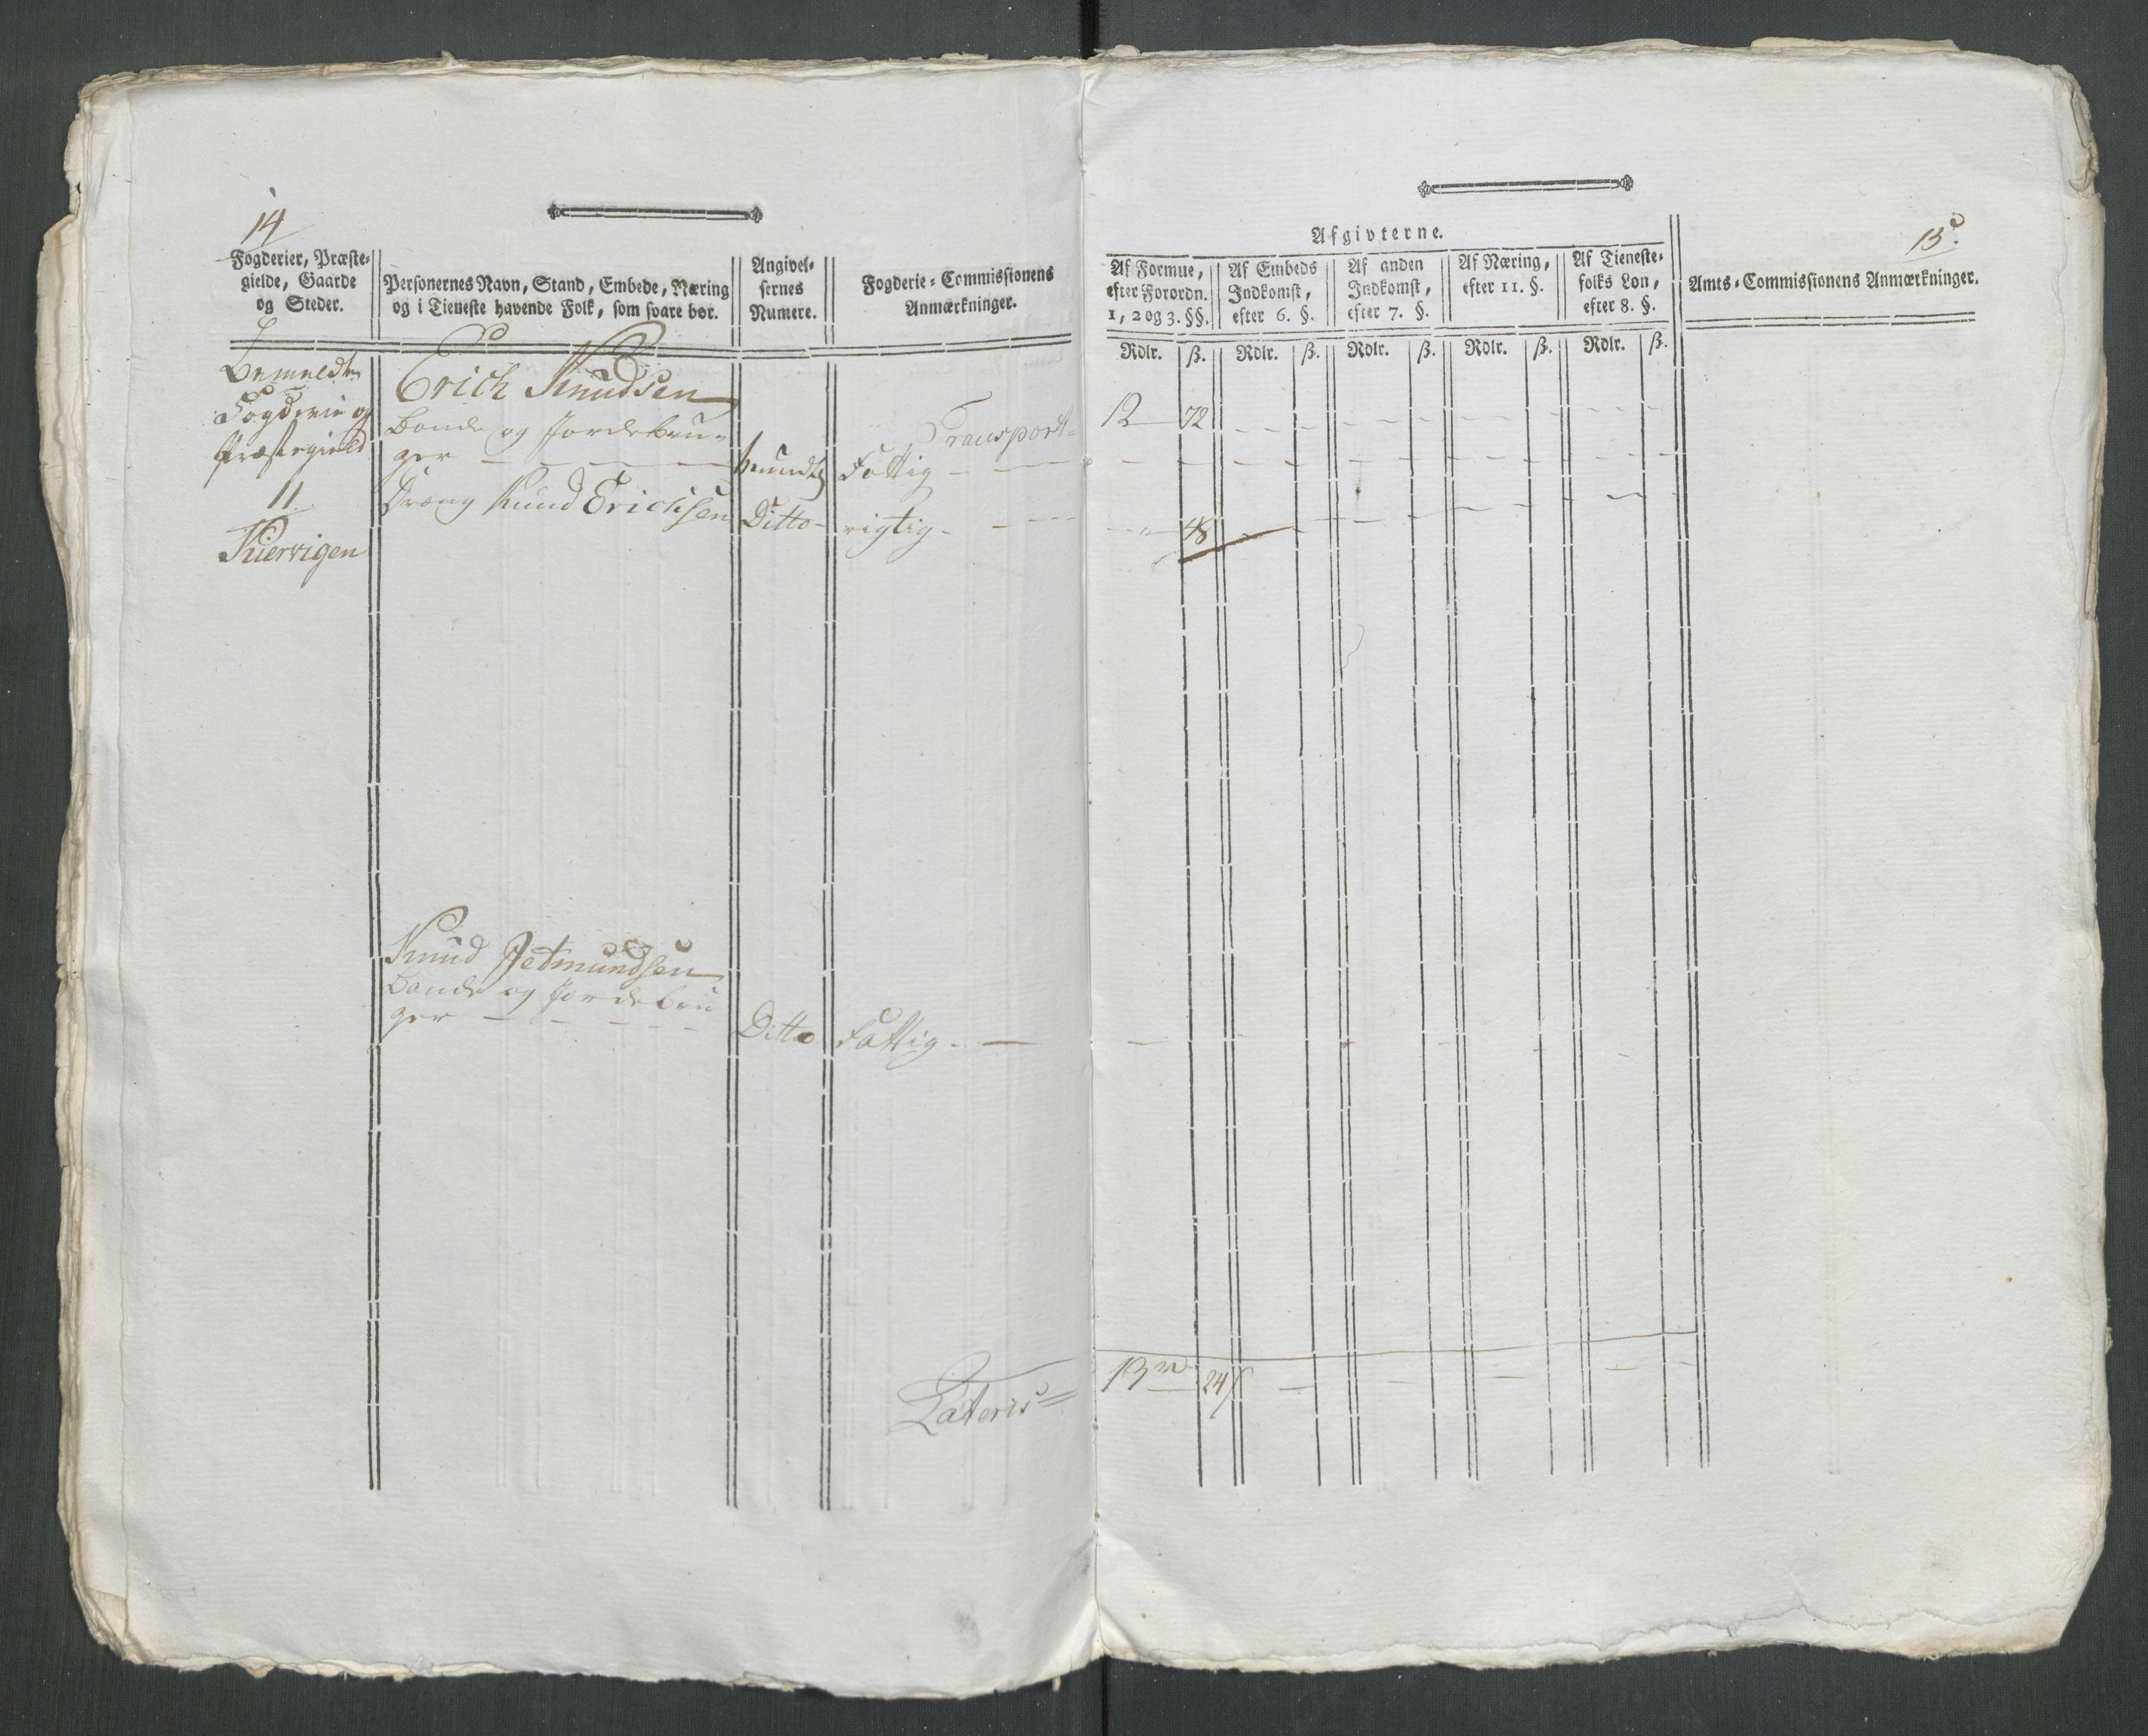 14
Fogderier, Præste-
gielde, Gaarde
og Steder.
Personernes Navn, Stand, Embede, Næring
og i Tieneste havende Folk, som svare bør.
Angivel-
sernes
Numere.
Fogderie-Commissionens
Anmærkninger.
Bemeldte
Fogderie og
Præstegield
11
Erich Knudsen
Bonde og Jordebru-
ger
Mundtlg
Fattig
Transport
Dreng Knud Erichsen
Ditto
rigtig
Knud Jetmundsen
Bonde og Jordebru
ger
Ditto
Fattig
Lateris
15
Afgivterne.
Af Formue,
efter Forordn.
1, 2 og 3. §§.
Af Embeds
Indkomst,
efter 6. §.
Af anden
Indkomst,
efter 7. §.
Af Næring,
efter 11. §.
Af Tieneste-
folks Løn,
efter 8. §.
Amts-Commissionens Anmærkninger.
Rdlr. ß. Rdlr. ß. Rdlr. ß. Rdlr. ß. Rdlr. ß.
12 72
48
13 24